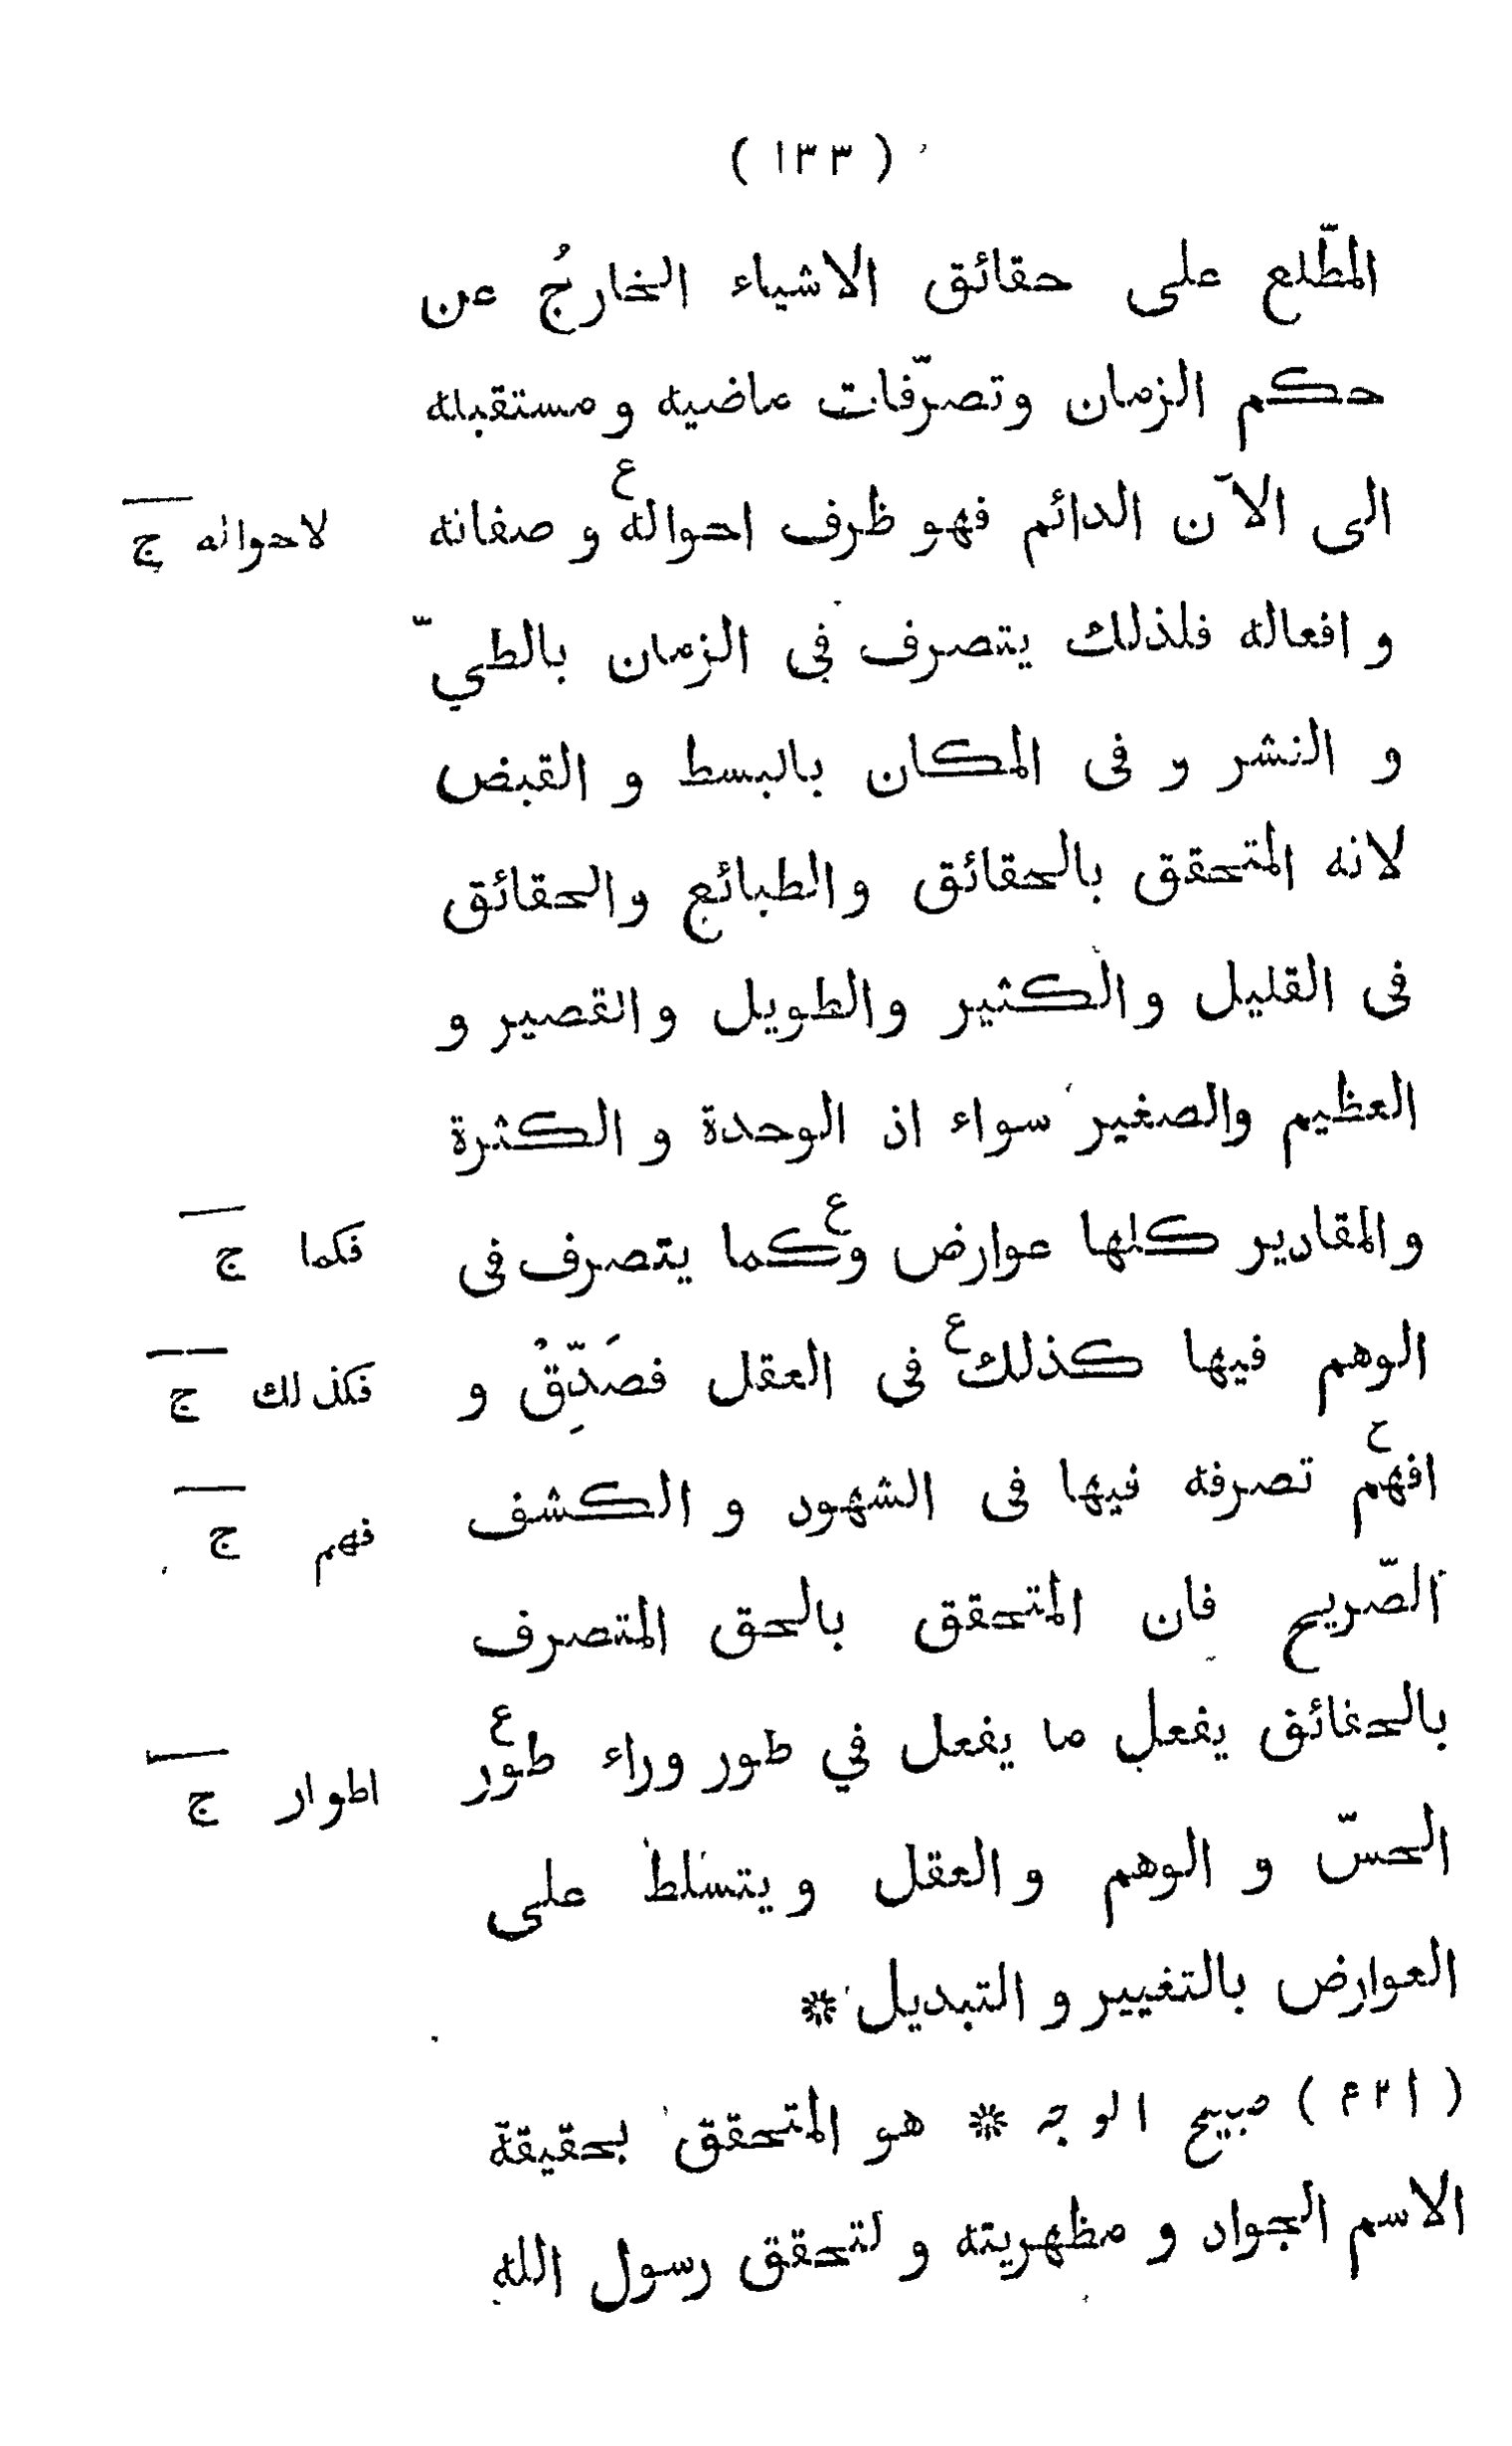 ( ١٣٣ )
المطّلع على حقائق الاشياء الخارجُ عن
حكم الزمان وتصرّفات ماضيه و مستقبله
الى الآن الدائم فهو ظرف احواله ع و صفاته لاحواله ج
و افعاله فلذلك يتصرف فى الزمان بالطيّ
و النشر و فى المكان بالبسط و القبض
لانه المتحقق بالحقائق والطبائع والحقائق
فى القليل والكثير والطويل والقصير و
العظيم والصغير سواء اذ الوحدة و الكثرة
والمقادير كلها عوارض ع وكما يتصرف فى فكما ج
الوهم فيها كذلك ع فى العقل فصَدِّقْ و فكذلك ج
افهم ح تصرفه فيها فى الشهود و الكشف فهم ج
الصّريح فان المتحقق بالحق المتصرف
بالحقائق يفعل ما يفعل في طور وراء طور ع اطوار ج
الحسّ و الوهم و العقل و يتسلط على
العوارض بالتغيير و التبديل *
( ١٣٤ ) صبيح الوجه * هو المتحقق بحقيقة
الاسم الجواد و مظهريته و لتحقق رسول الله